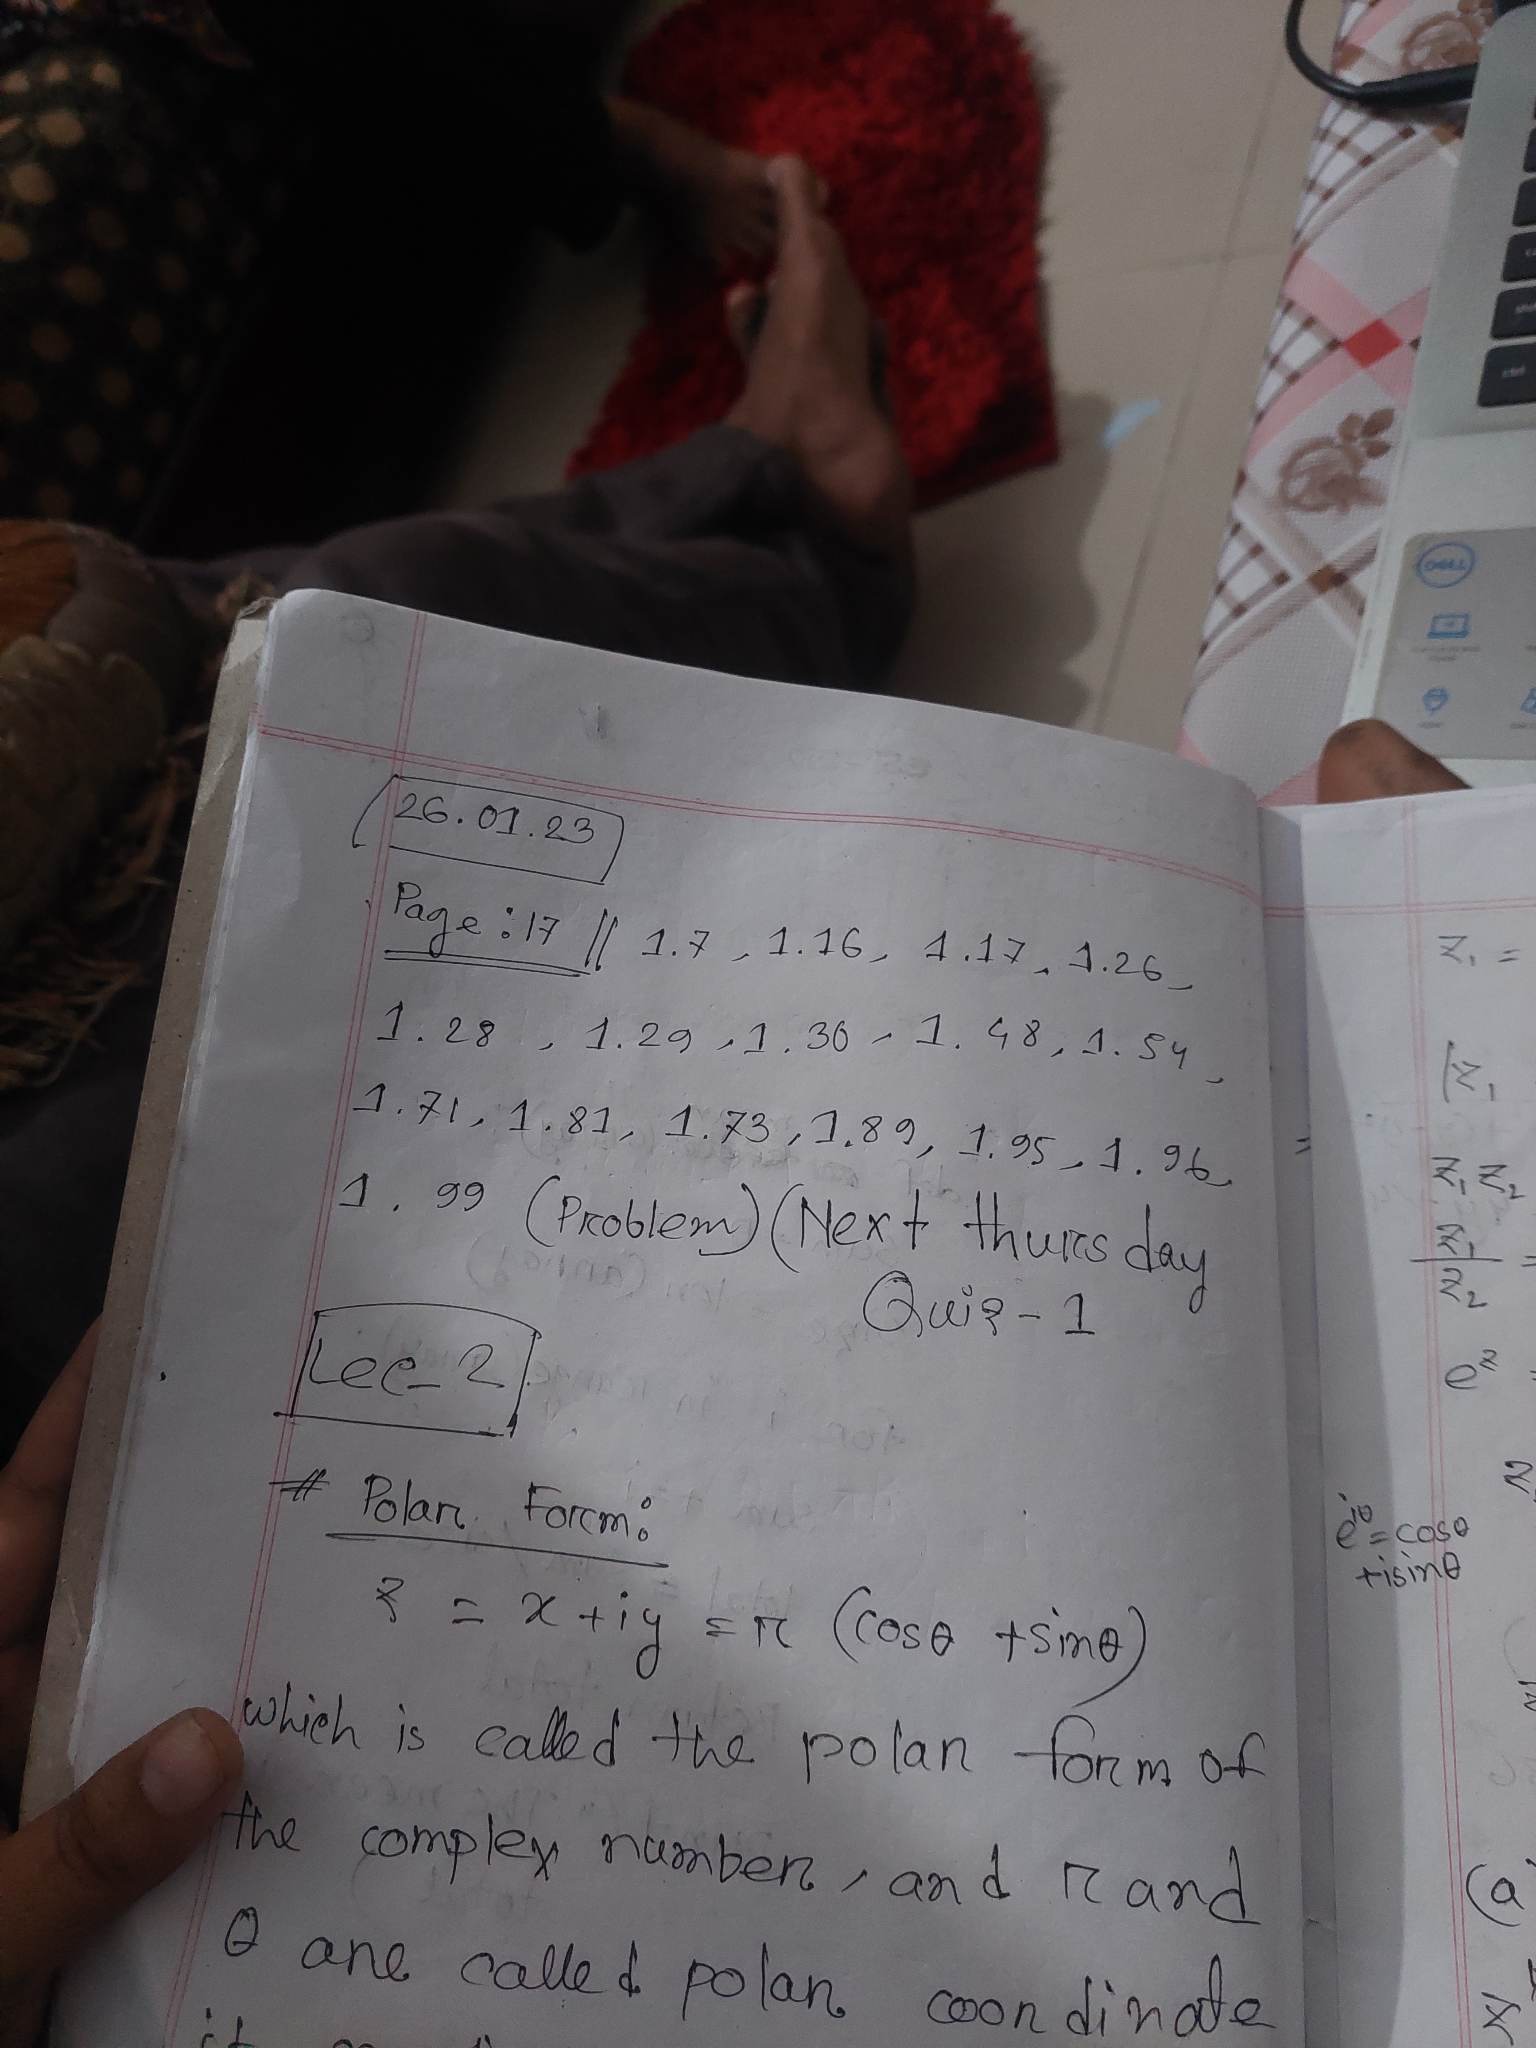 26.01.23
Page : 17 || 1.7, 1.16, 1.17, 1.26,
1.28, 1.29, 1.30, 1.48, 1.54,
1.71, 1.81, 1.73, 1.89, 1.95, 1.96,
1.99 (Problem) (Next thursday
Quiz-1
Lec-2
# Polar Form:
z = x+iy = r (cosθ +sinθ)
which is called the polar form of
the complex number, and r and
θ are called polar coordinate
z₁ =
(z₁
=
z₁ z₂
z₁/z₂ =
e^z =
e^iθ = cosθ
+isinθ
(a
DELL
ctrl